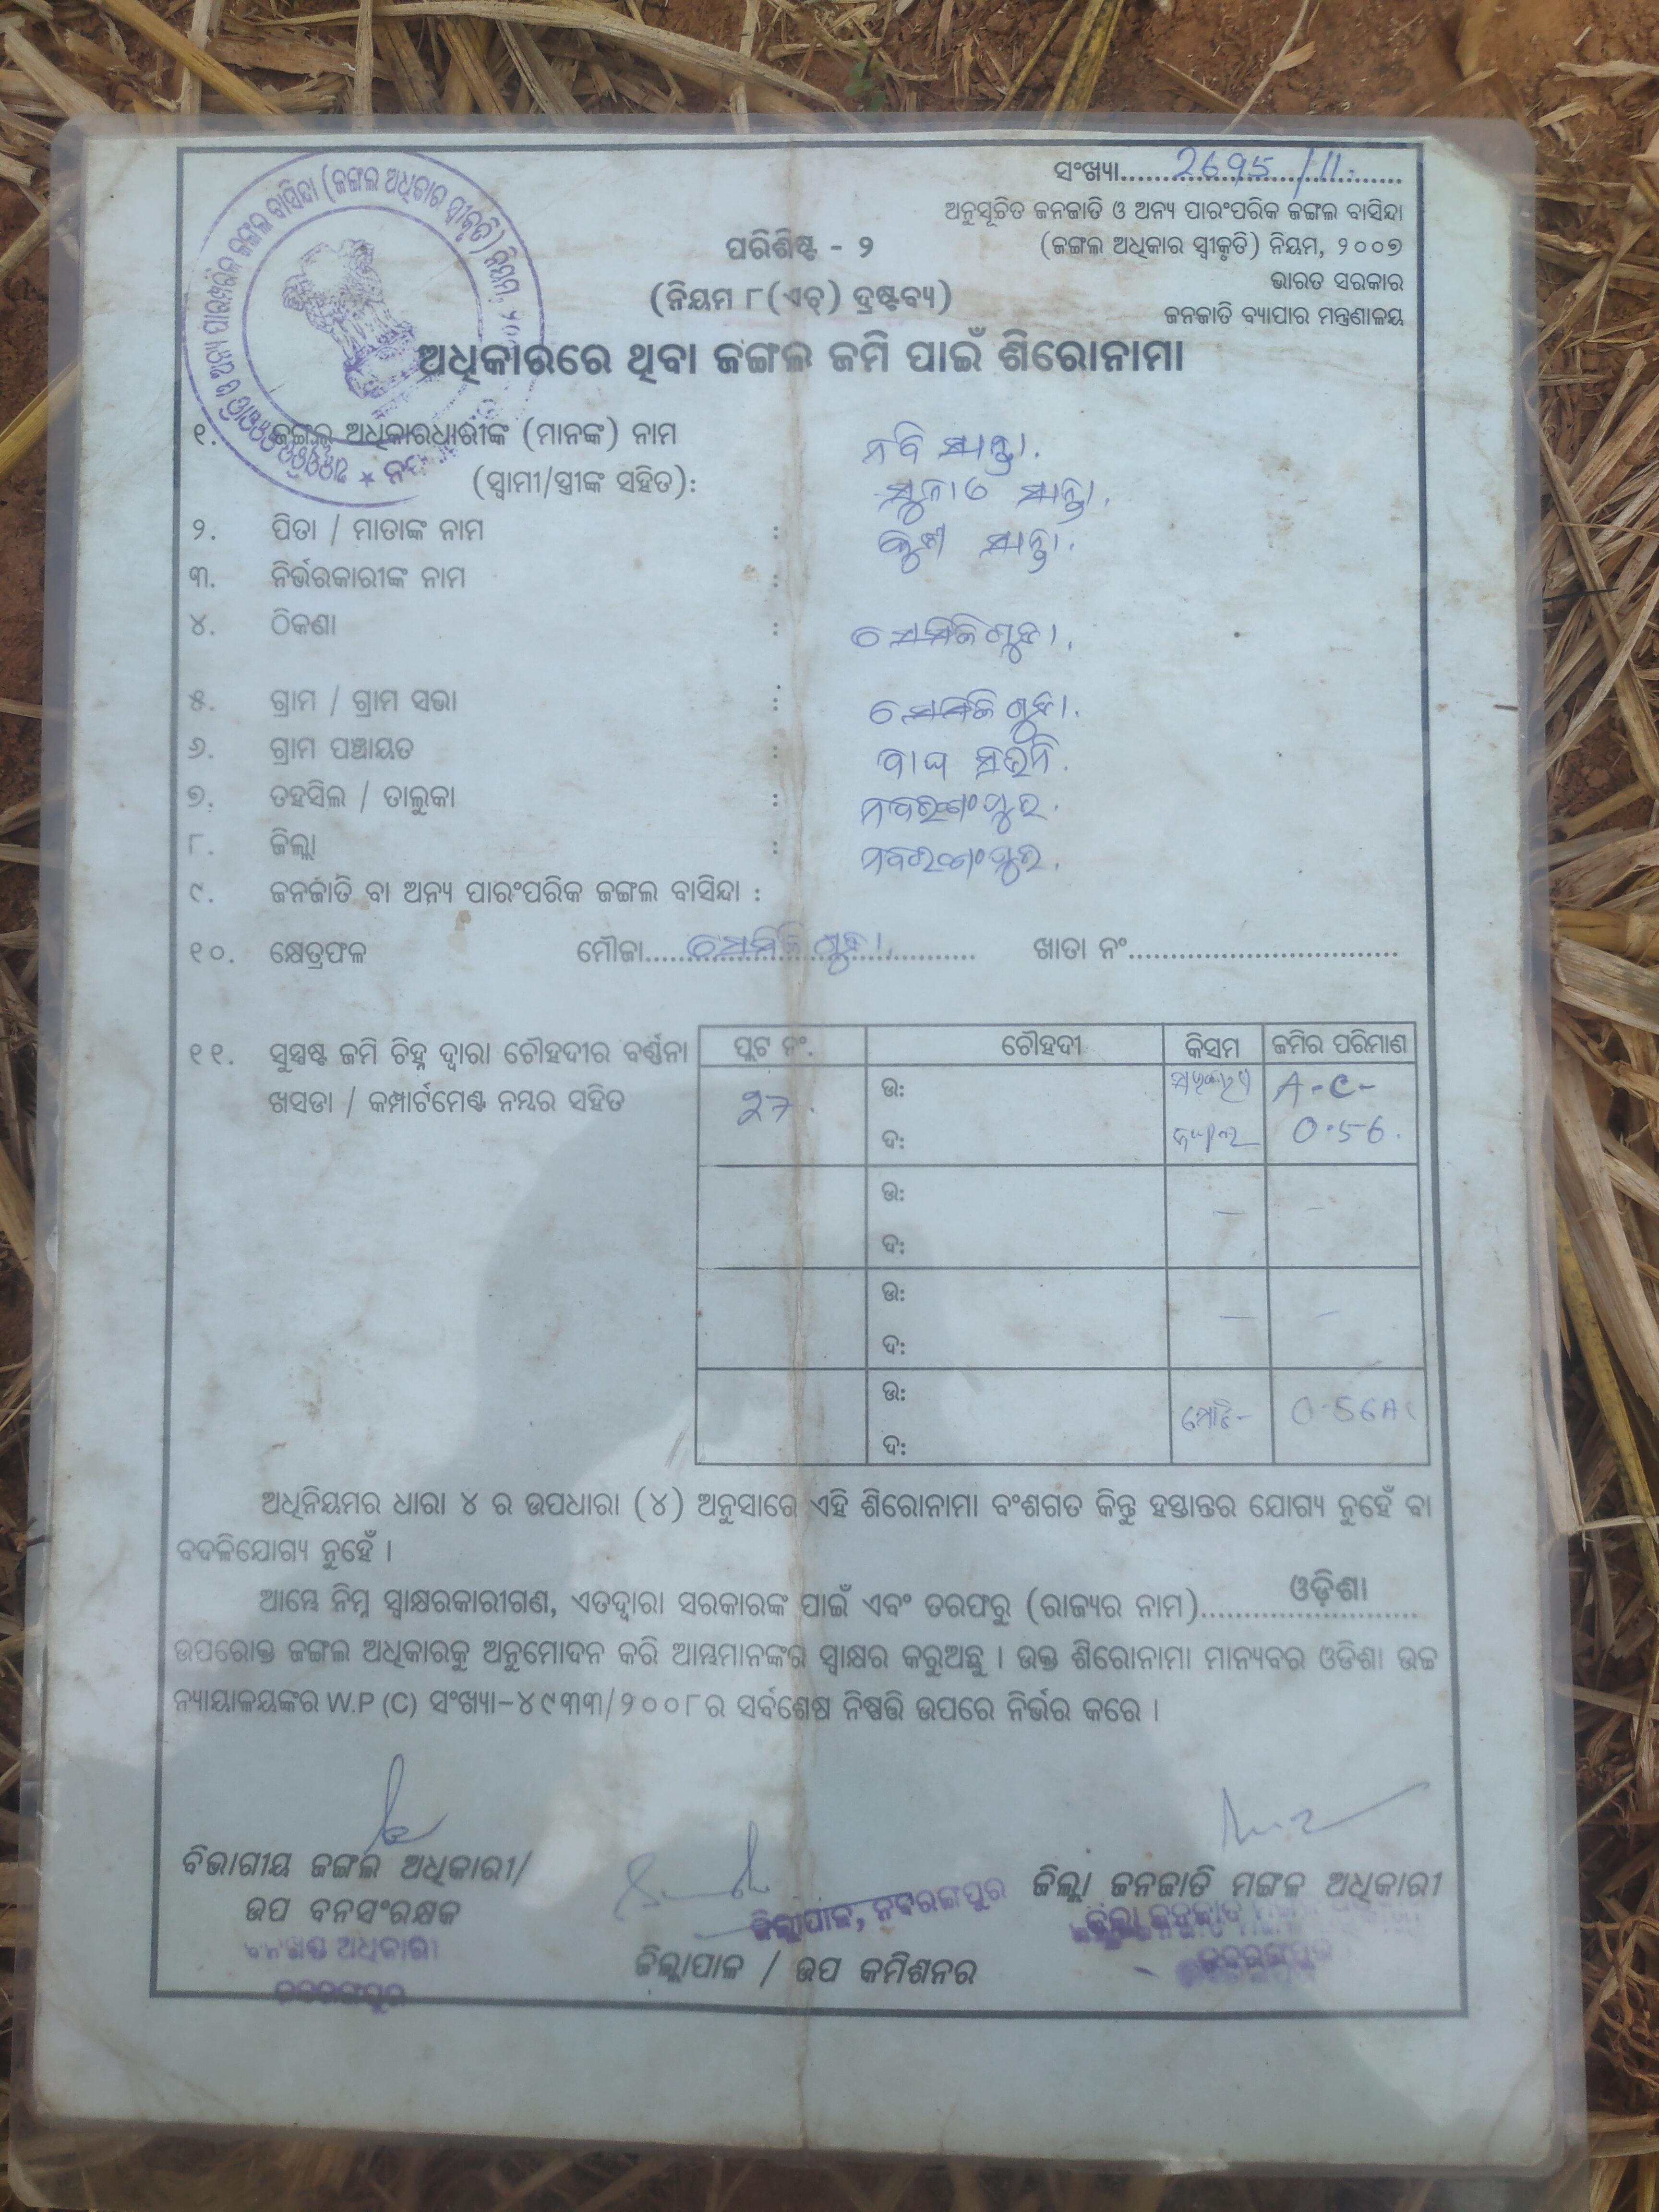 ସଂଖ୍ୟା..........2695/11..........
ଅନୁସୂଚିତ ଜନଜାତି ଓ ଅନ୍ୟ ପାରଂପରିକ ଜଙ୍ଗଲ ବାସିନ୍ଦା
(ଜଙ୍ଗଲ ଅଧିକାର ସ୍ୱୀକୃତି) ନିୟମ, ୨୦୦୭
ଭାରତ ସରକାର
ଜନଜାତି ବ୍ୟାପାର ମନ୍ତ୍ରଣାଳୟ
ପରିଶିଷ୍ଟ - ୨
(ନିୟମ ୮(ଏଚ୍) ଦ୍ରଷ୍ଟବ୍ୟ)
ଅଧିକାରରେ ଥିବା ଜଙ୍ଗଲ ଜମି ପାଇଁ ଶିରୋନାମା
୧. ଜଙ୍ଗଲ ଅଧିକାରଧାରୀଙ୍କ (ମାନଙ୍କ) ନାମ ନବି ସାନ୍ତା.
(ସ୍ୱାମୀ/ସ୍ତ୍ରୀଙ୍କ ସହିତ): ସାନ୍ତା.
୨. ପିତା / ମାତାଙ୍କ ନାମ : ସାନ୍ତା.
୩. ନିର୍ଭରକାରୀଙ୍କ ନାମ :
୪. ଠିକଣା :
୫. ଗ୍ରାମ / ଗ୍ରାମ ସଭା :
୬. ଗ୍ରାମ ପଞ୍ଚାୟତ :
୭. ତହସିଲ / ତାଲୁକା : ନବରଙ୍ଗପୁର.
୮. ଜିଲ୍ଲା : ନବରଙ୍ଗପୁର.
୯. ଜନଜାତି ବା ଅନ୍ୟ ପାରଂପରିକ ଜଙ୍ଗଲ ବାସିନ୍ଦା :
୧୦. କ୍ଷେତ୍ରଫଳ ମୌଜା.......... ଖାତା ନଂ..........
୧୧. ସୁସ୍ପଷ୍ଟ ଜମି ଚିହ୍ନ ଦ୍ୱାରା ଚୌହଦୀର ବର୍ଣ୍ଣନା
ଖସଡା / କମ୍ପାର୍ଟମେଣ୍ଟ ନମ୍ବର ସହିତ
ପ୍ଲଟ ନଂ. ଚୌହଦୀ କିସମ ଜମିର ପରିମାଣ
27. ଉ: A-C-
ଦ: ଜଙ୍ଗଲ 0.56.
ଉ: — —
ଦ:
ଉ: — —
ଦ:
ଉ: ମୋଟ- 0.56AC
ଦ:
ଅଧିନିୟମର ଧାରା ୪ ର ଉପଧାରା (୪) ଅନୁସାରେ ଏହି ଶିରୋନାମା ବଂଶଗତ କିନ୍ତୁ ହସ୍ତାନ୍ତର ଯୋଗ୍ୟ ନୁହେଁ ବା
ବଦଳିଯୋଗ୍ୟ ନୁହେଁ ।
ଆମ୍ଭେ ନିମ୍ନ ସ୍ୱାକ୍ଷରକାରୀଗଣ, ଏତଦ୍ୱାରା ସରକାରଙ୍କ ପାଇଁ ଏବଂ ତରଫରୁ (ରାଜ୍ୟର ନାମ)..........ଓଡ଼ିଶା..........
ଉପରୋକ୍ତ ଜଙ୍ଗଲ ଅଧିକାରକୁ ଅନୁମୋଦନ କରି ଆମ୍ଭମାନଙ୍କର ସ୍ୱାକ୍ଷର କରୁଅଛୁ । ଉକ୍ତ ଶିରୋନାମା ମାନ୍ୟବର ଓଡିଶା ଉଚ୍ଚ
ନ୍ୟାୟାଳୟଙ୍କର W.P (C) ସଂଖ୍ୟା-୪୯୩୩/୨୦୦୮ର ସର୍ବଶେଷ ନିଷ୍ପତ୍ତି ଉପରେ ନିର୍ଭର କରେ ।
ବିଭାଗୀୟ ଜଙ୍ଗଲ ଅଧିକାରୀ/
ଉପ ବନସଂରକ୍ଷକ
ବନଖଣ୍ଡ ଅଧିକାରୀ
ନବରଙ୍ଗପୁର
ଜିଲ୍ଲାପାଳ, ନବରଙ୍ଗପୁର
ଜିଲ୍ଲାପାଳ / ଉପ କମିଶନର
ଜିଲ୍ଲା ଜନଜାତି ମଙ୍ଗଳ ଅଧିକାରୀ
ନବରଙ୍ଗପୁର